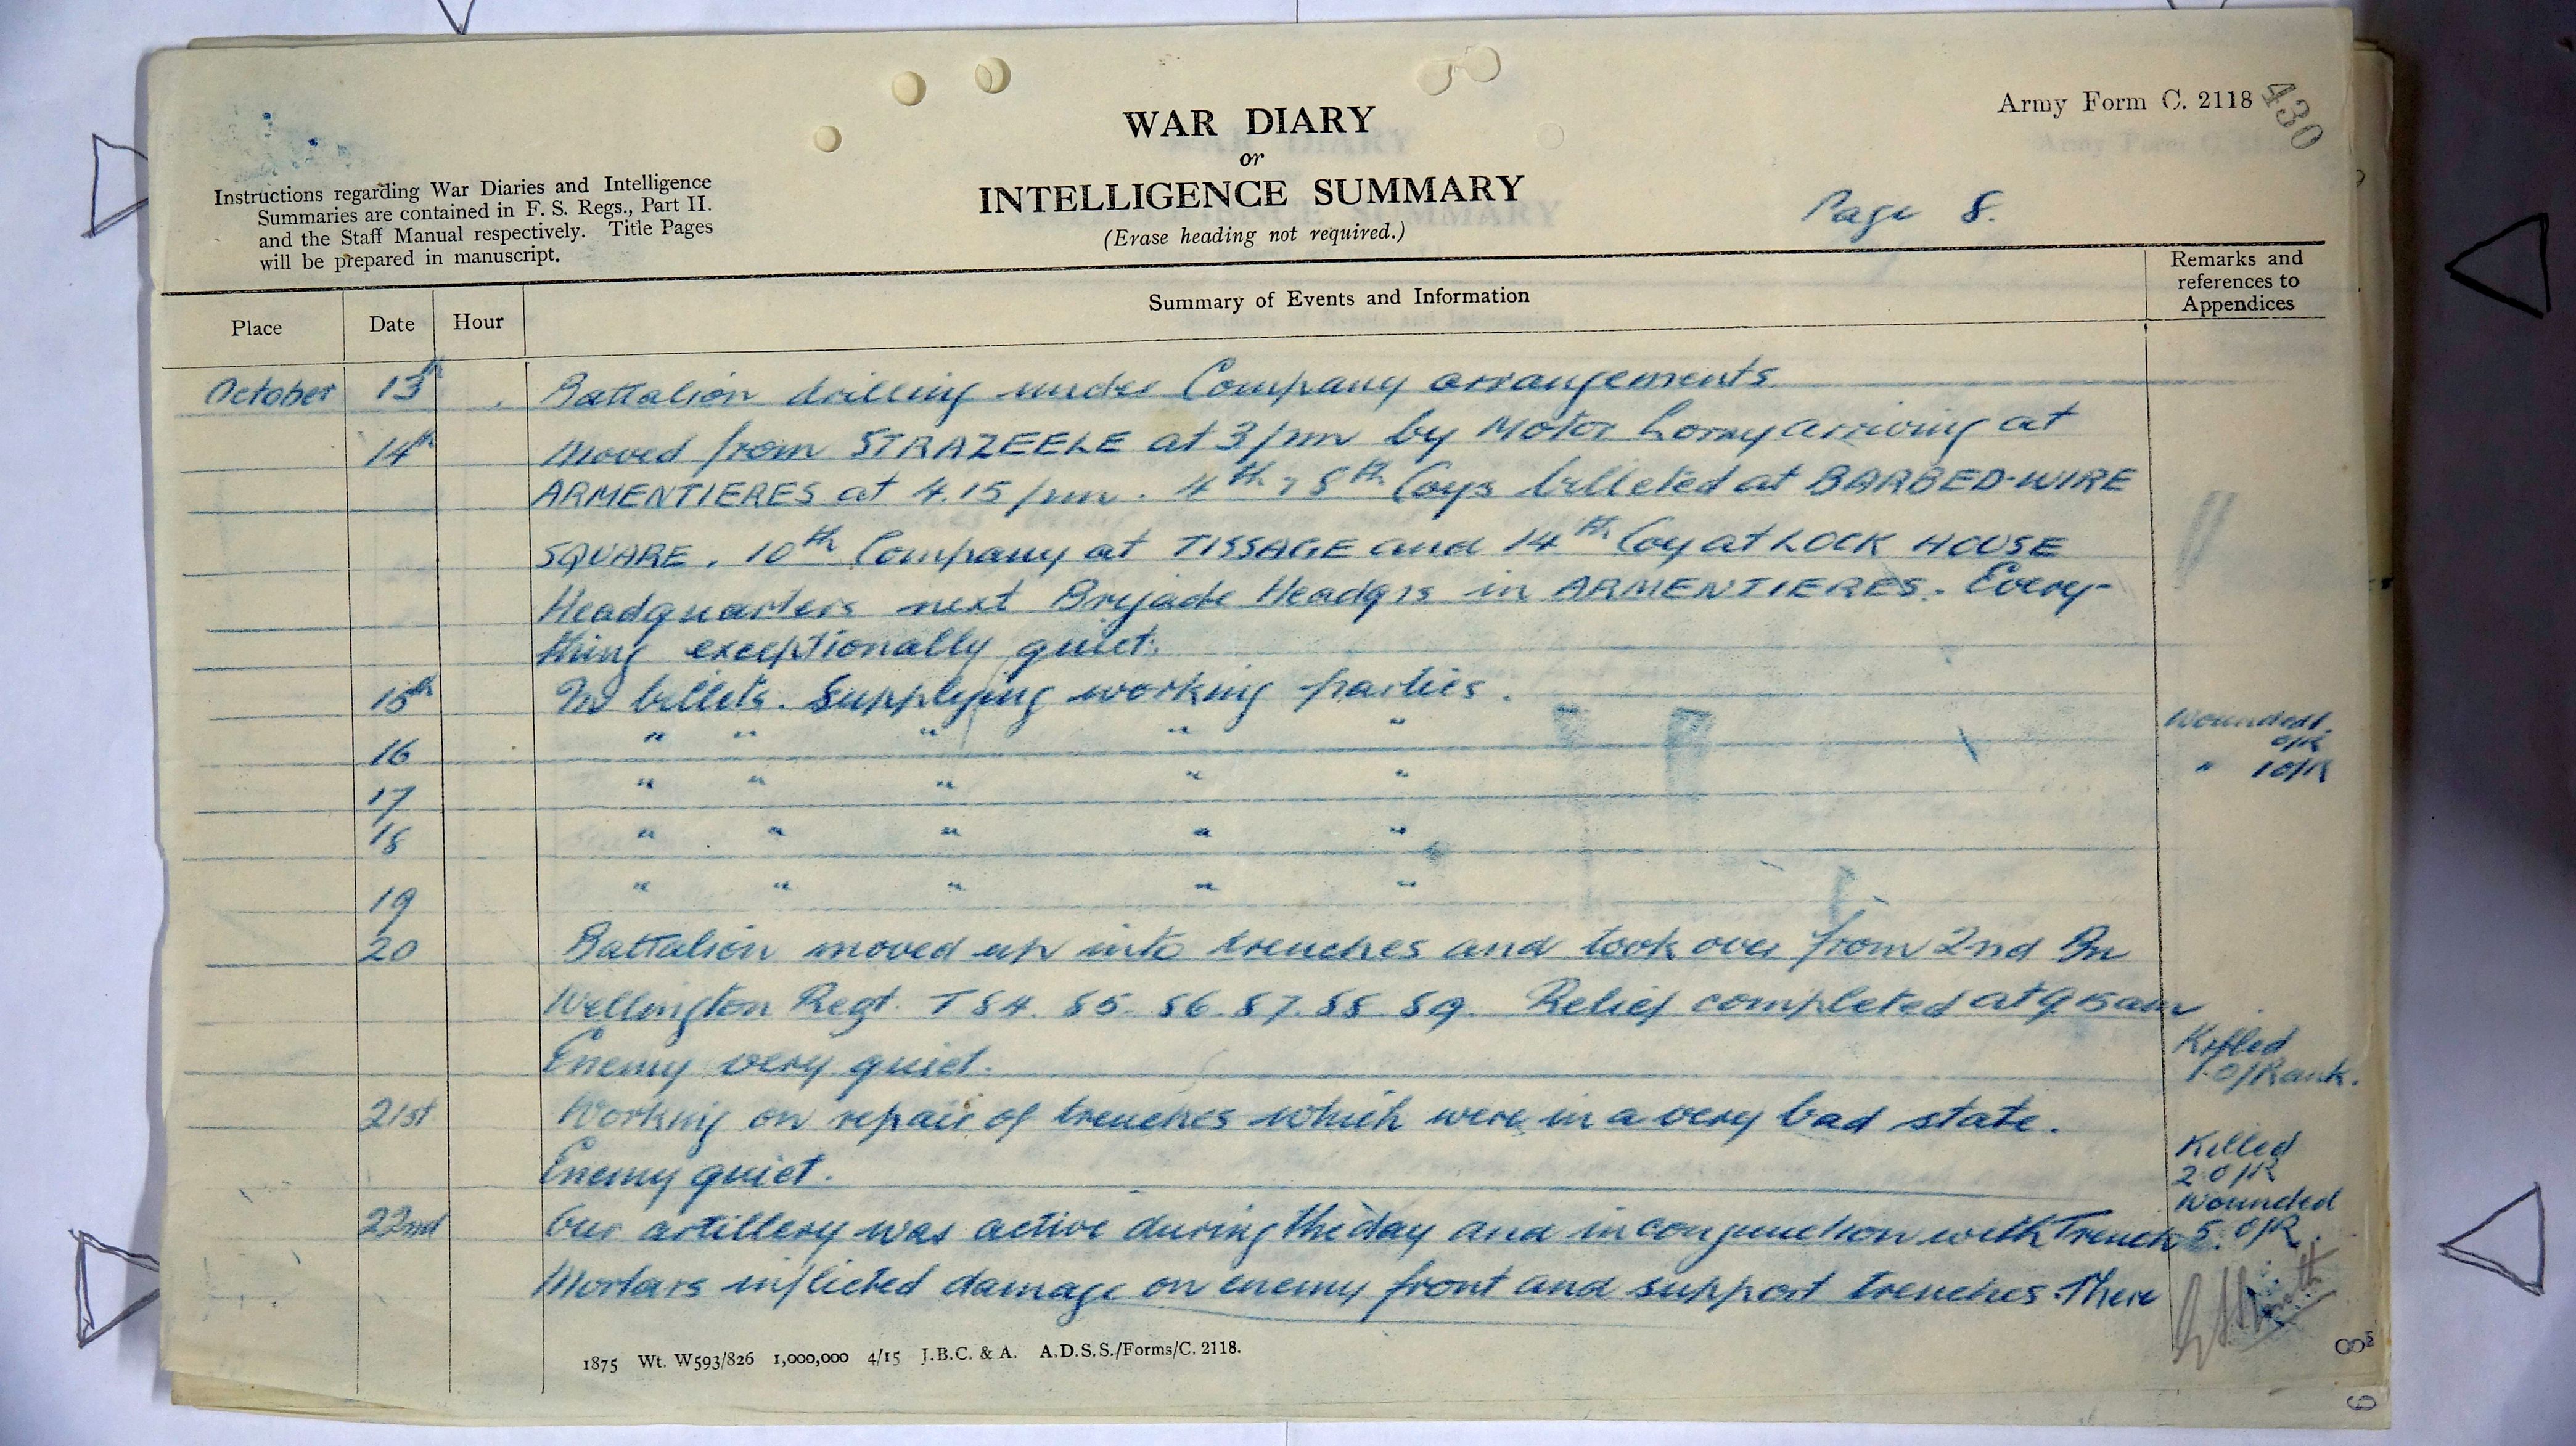 Army Form C. 2118
430
WAR DIARY
or
INTELLIGENCE SUMMARY
(Erase heading not required.)
Page 8.
Instructions regarding War Diaries and Intelligence
Summaries are contained in F. S. Regs., Part II.
and the Staff Manual respectively. Title Pages
will be prepared in manuscript.
Place Date Hour Summary of Events and Information Remarks and
references to
Appendices
October 13th Battalion drilling under Company arrangements
14th Moved from STRAZEELE at 3 pm by Motor Lorry arriving at
ARMENTIERES at 4.15 pm. 4th, 8th Coys billeted at BARBED-WIRE
SQUARE, 10th Company at TISSAGE and 14th Coy at LOCK HOUSE
Headquarters next Brigade Headqrs in ARMENTIERES. Every-
thing exceptionally quiet.
15th In billets. Supplying working parties.
16 " " " " " Wounded 1
O/R
17 " " " " " " 1 O/R
18 " " " " "
19 " " " " "
20 Battalion moved up into trenches and took over from 2nd Bn
Wellington Regt. T 84. 85. 86. 87. 88. 89. Relief completed at 9.15 am
Enemy very quiet. Killed
1 O/Rank.
21st Working on repair of trenches which were in a very bad state.
Enemy quiet. Killed
2 O/R
Wounded
5. O/R.
22nd Our artillery was active during the day and in conjunction with Trench
Mortars inflicted damage on enemy front and support trenches. There
1875 Wt. W593/826 1,000,000 4/15 J.B.C. & A. A.D.S.S./Forms/C. 2118.